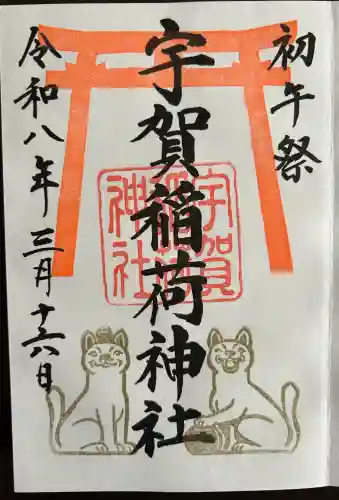 初午祭
宇賀稲荷神社
宇賀
稲荷
神社
令和八年三月十六日